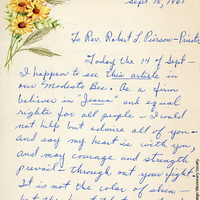 Sept 18, 1961
To Rev. Robert L. Pierson - Priests
Today the 14 of Sept -
I happen to see this article in
our "Modesto Bee. As a firm
believer in "Jesus" and equal
rights for all people - I could
not help but admire all of you -
and say my heart is with you,
and may courage and strength
prevail - through out your fight.
It is not the color of skin -